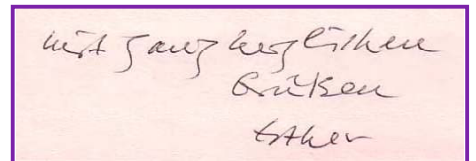 mit ganz herzlichen
Grüßen
Esther